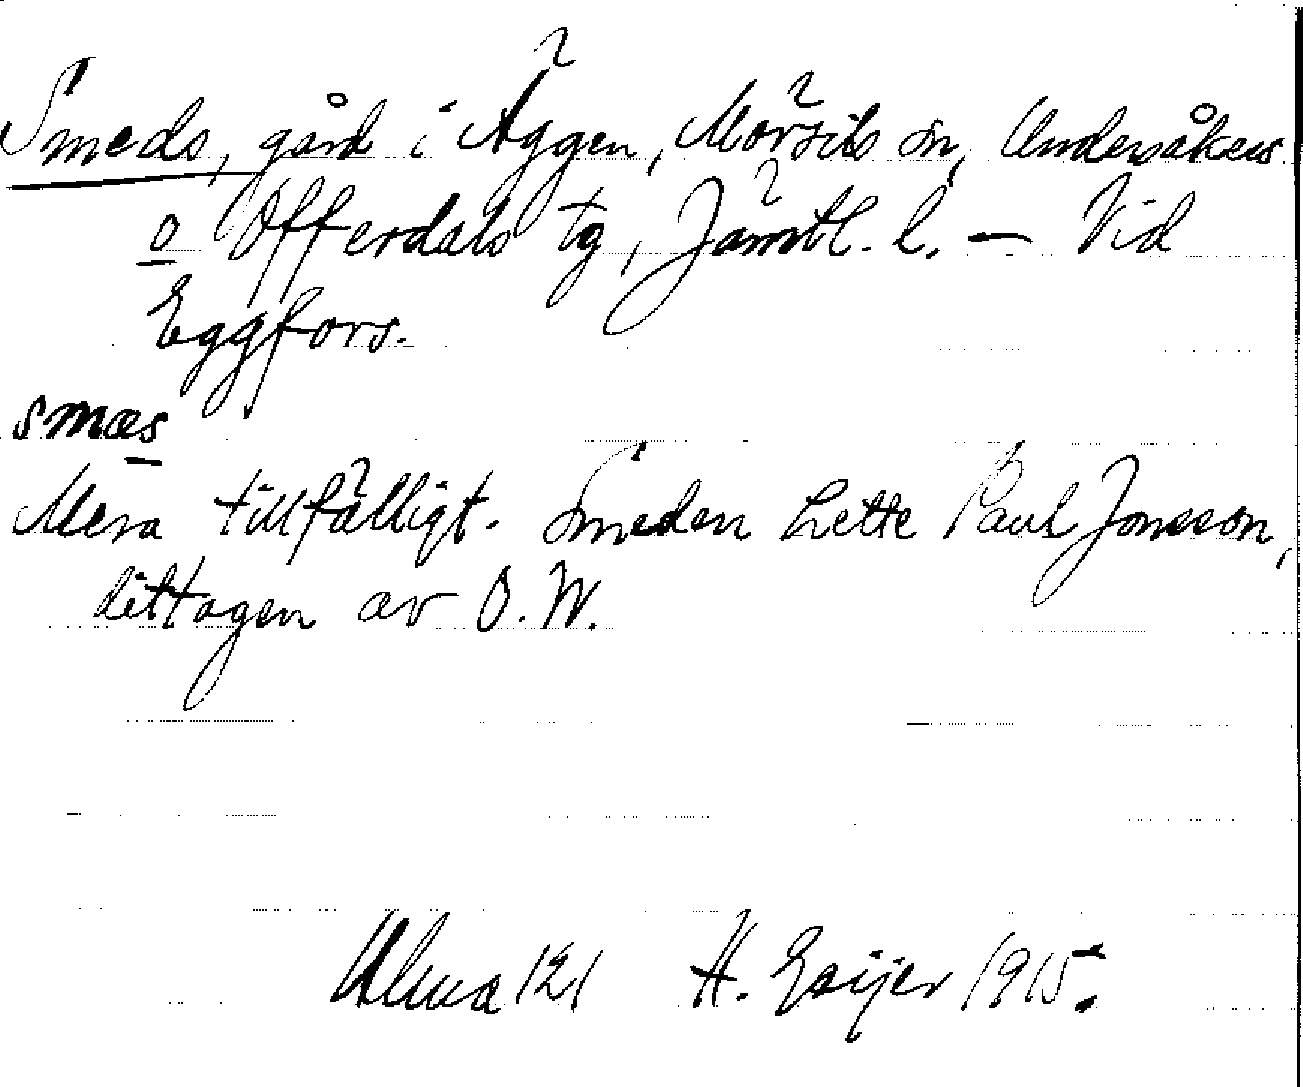 Smeds, gård i Äggen, Mörsils sn, Undersåkers
o Offerdals tg, Jämtl. l. — Vid
Eggfors.
smæs
Mera tillfälligt. Smeden hette Paul Jonsson,
dittagen av O. W.
Ulma 121 H. Geijer 1915.